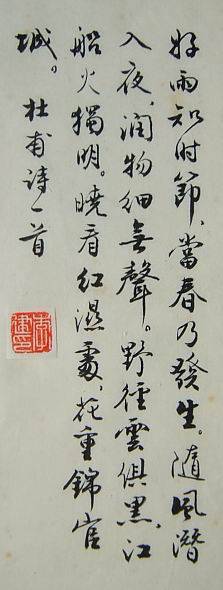 好雨知时節，當春乃發生。隨風潛
入夜，润物细無聲。野徑雲俱黑，江
船火獨明。曉看紅濕處，花重錦官
城。
杜甫诗一首